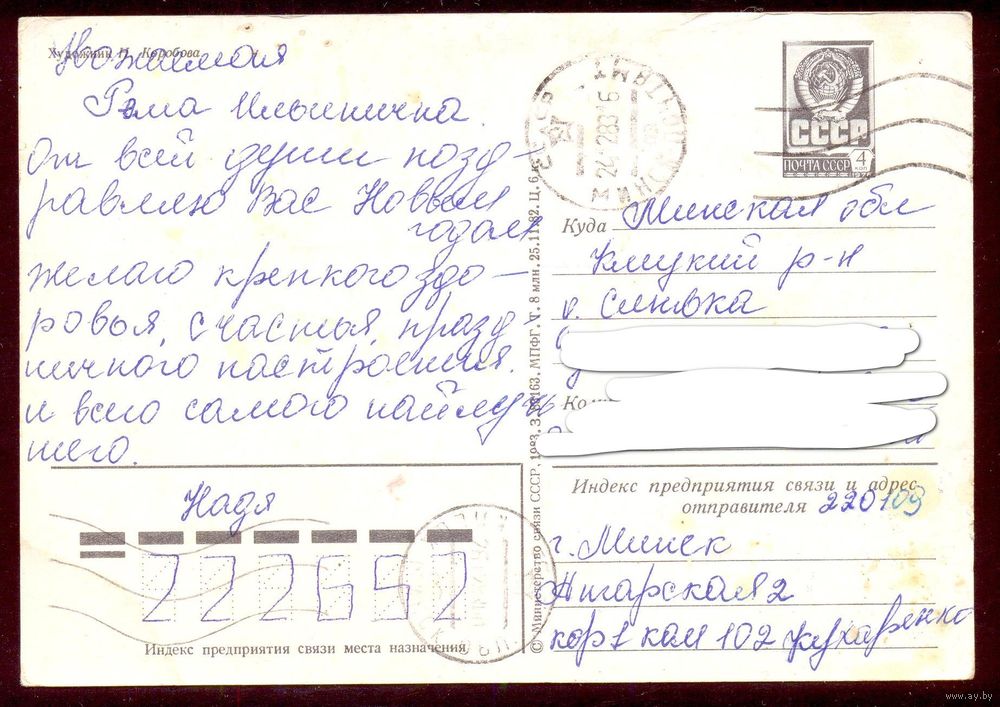 Художник Н. Коробова
Уважаемая
Рема Ильинична.
От всей души позд-
равляю Вас Новым
годом
желаю крепкого здо-
ровья, счастья, празд
ничного настроения.
и всего самого наилуч
шего.
Надя
222652
Индекс предприятия связи места назначения
© Министерство связи СССР, 1983. З. 83163. МПФГ. Т. 8 млн. 25.11.82. Ц. 6 к.
СССР
ПОЧТА СССР 4 коп
МИНСК ПОЧТАМТ
СССР
24 12 83 16
Куда Минская обл
Клецкий р-н
д. Синявка
Индекс предприятия связи и адрес
отправителя 220109
г. Минск
Ангарская 2
кор 1 ком 102 Кухаренко
www.ay.by